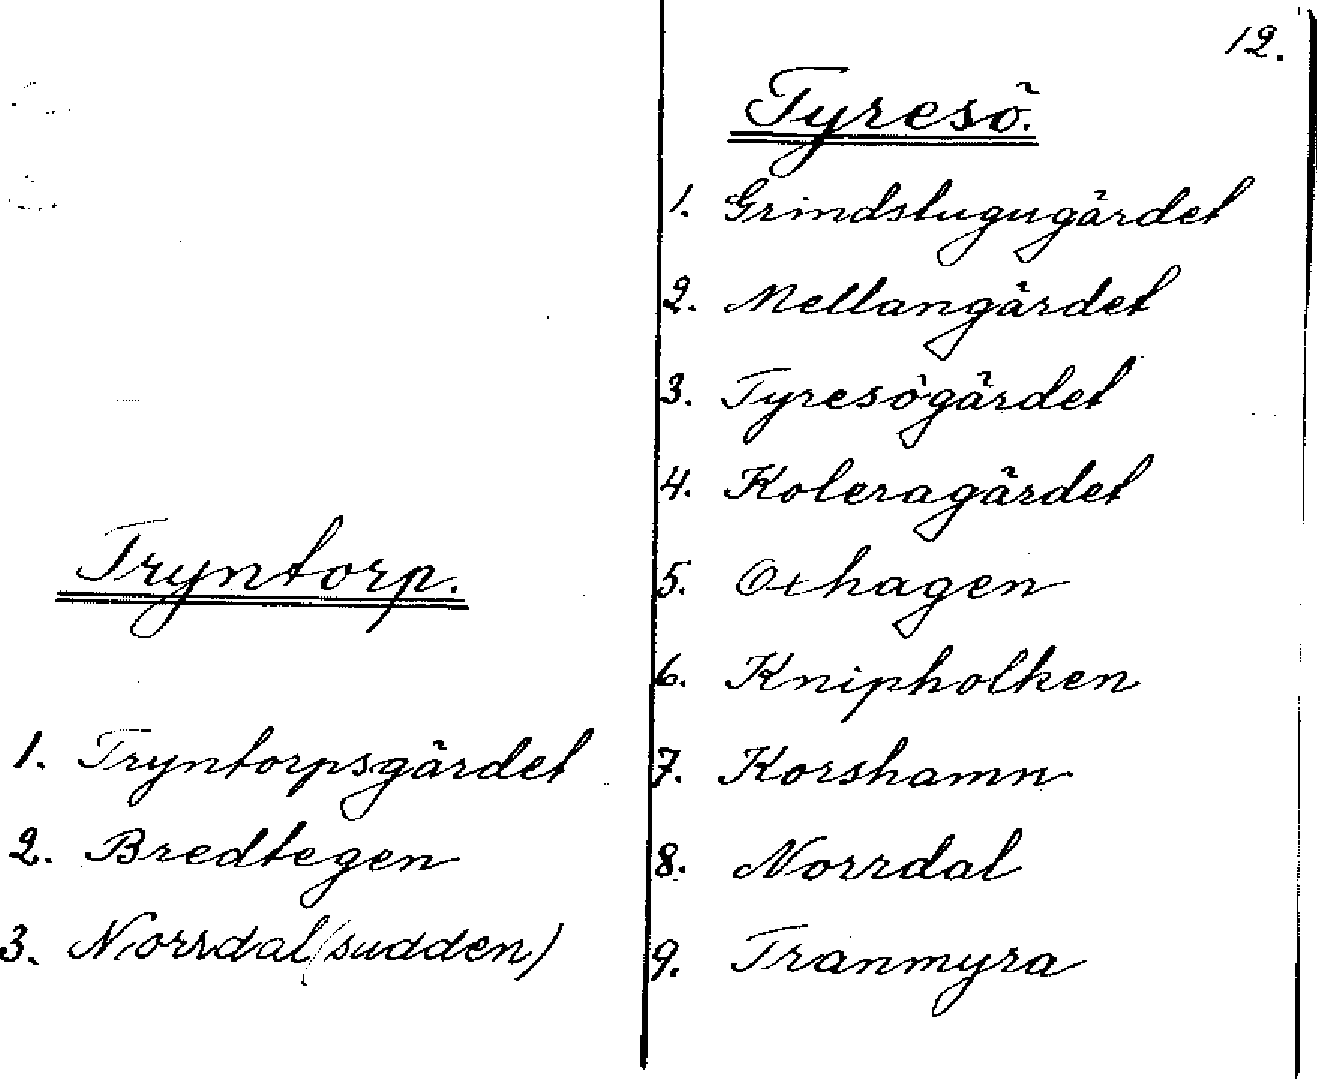 Tryntorp.
1. Tryntorpsgärdet
2. Bredtegen
3. Norrdal (sudden)
12.
Tyresö.
1. Grindstugugärdet
2. Mellangärdet
3. Tyresögärdet
4. Koleragärdet
5. Oxhagen
6. Knipholken
7. Korshamn
8. Norrdal
9. Tranmyra